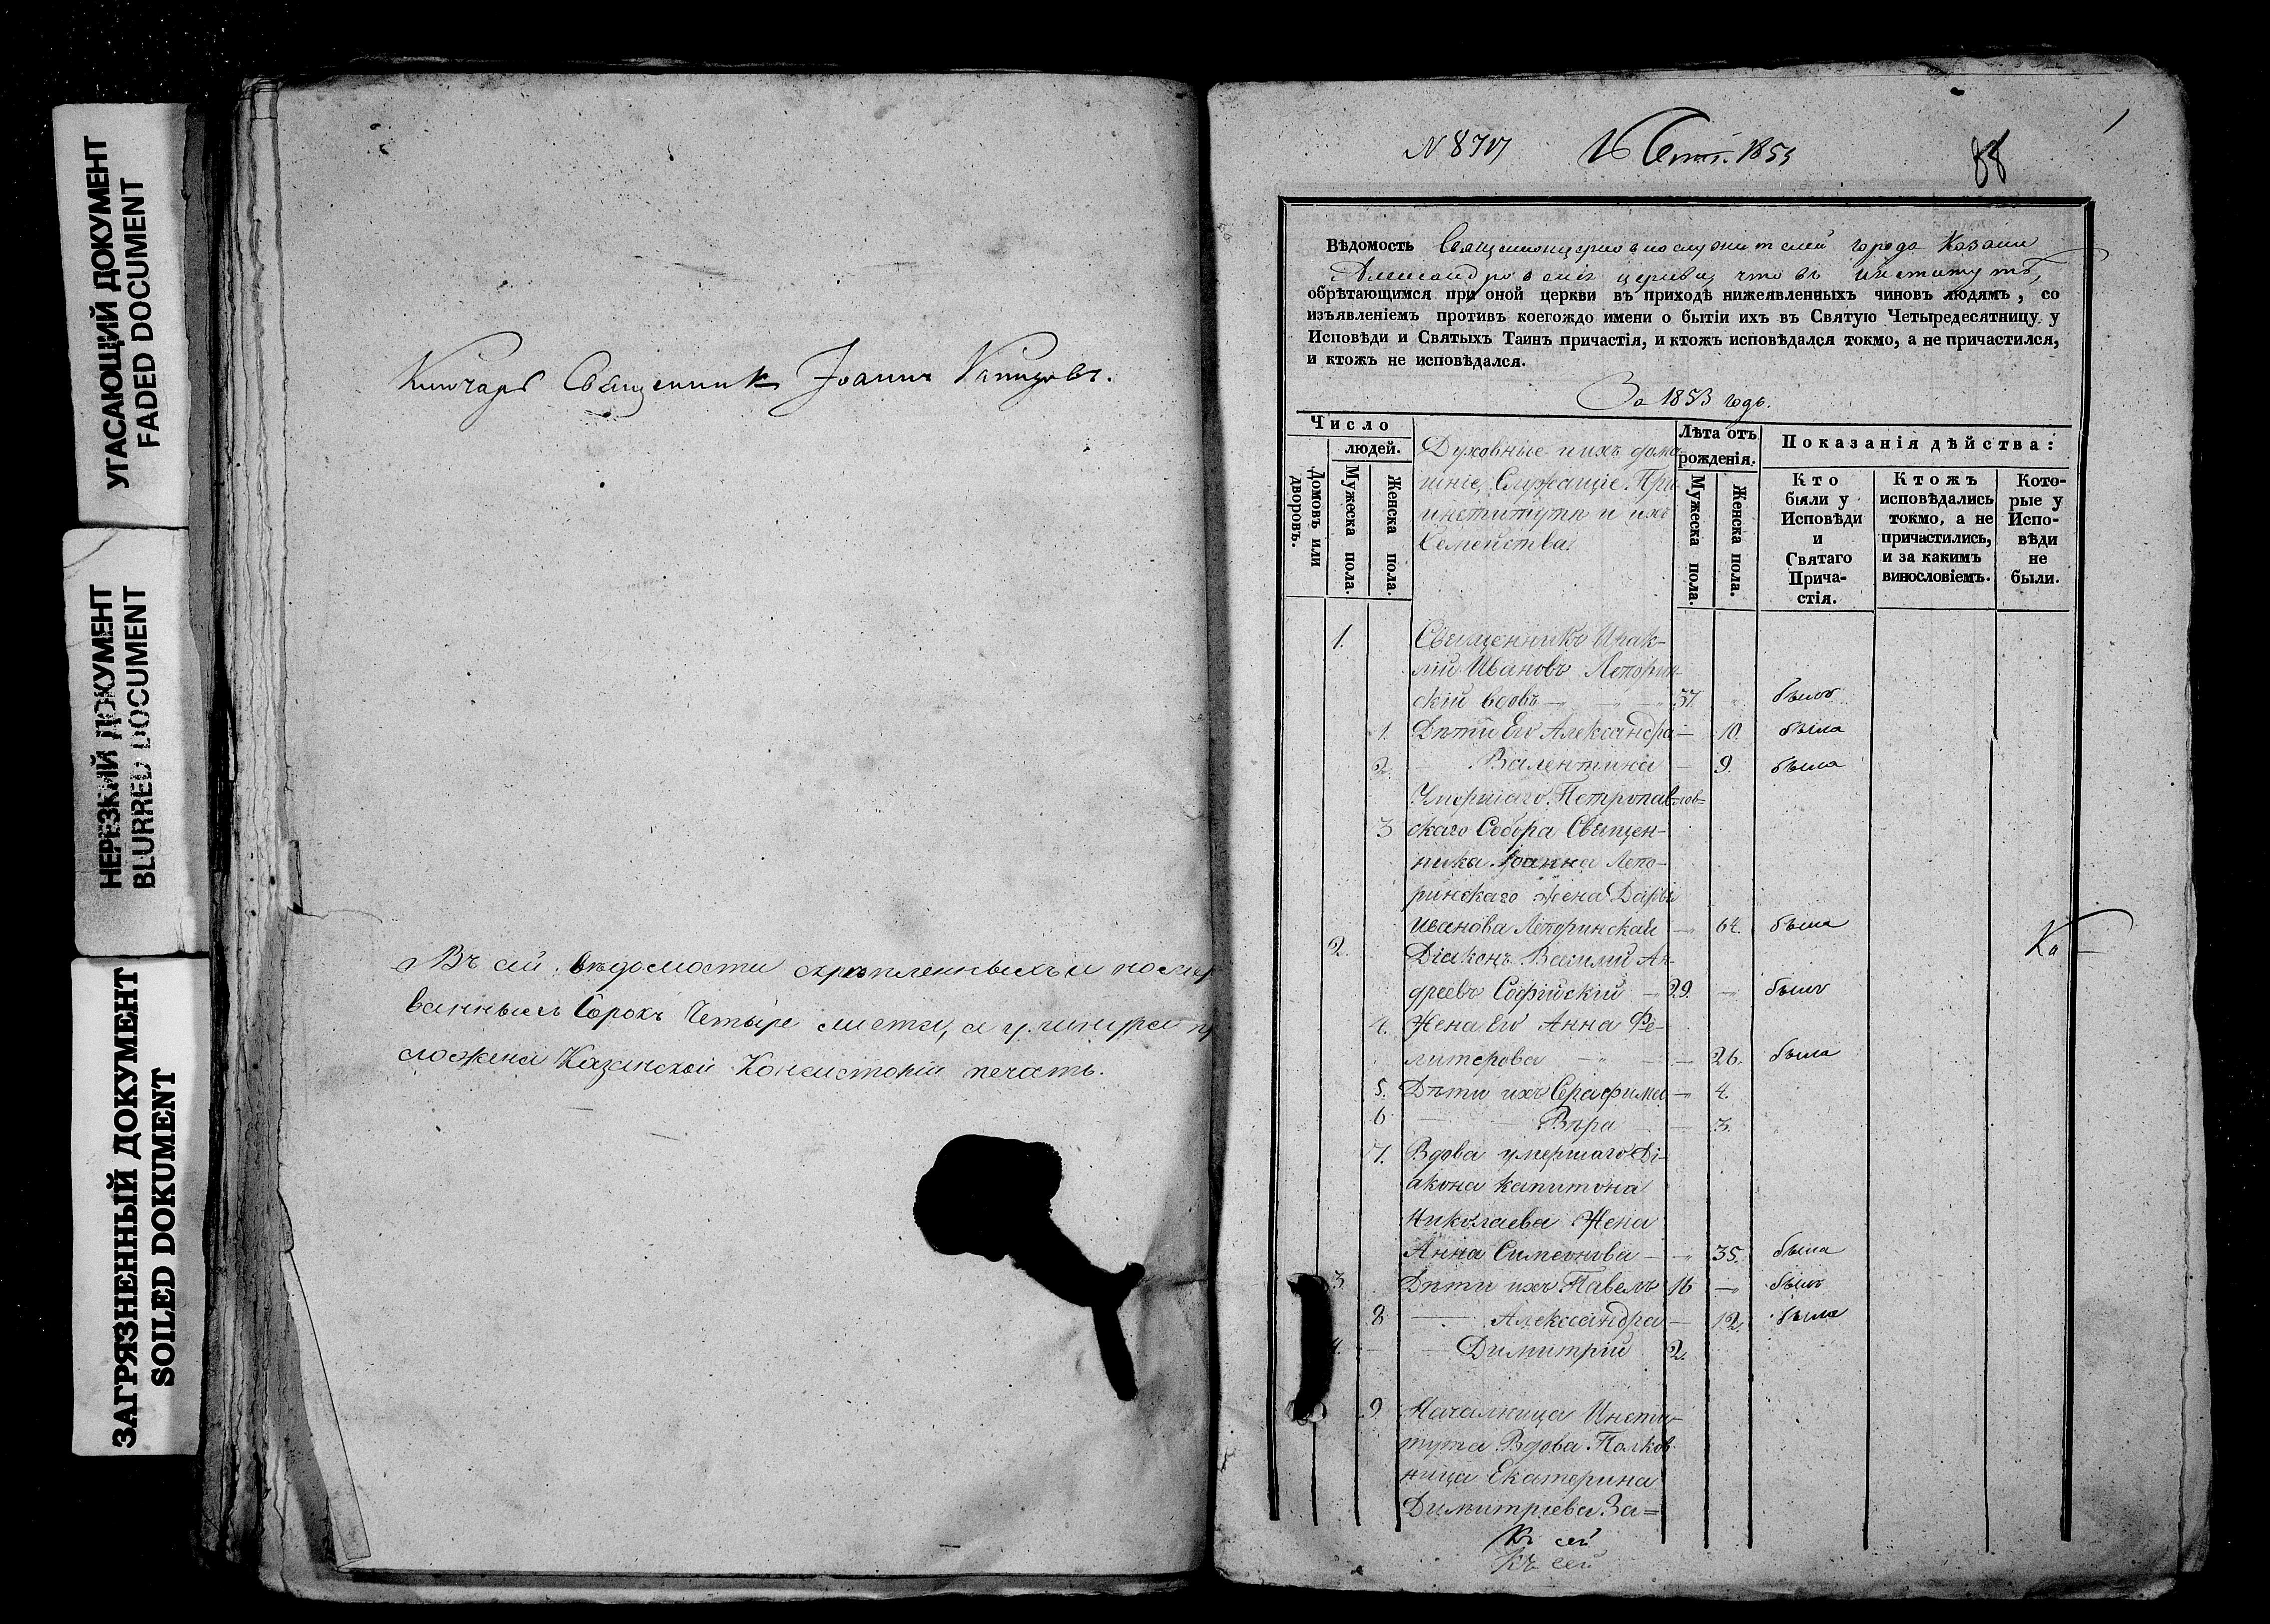 УГАСАЮЩИЙ ДОКУМЕНТ
FADED DOCUMENT
НЕРЕЗКИЙ ДОКУМЕНТ
BLURRED DOCUMENT
ЗАГРЯЗНЕННЫЙ ДОКУМЕНТ
SOILED DOKUMENT
Ключарь Священникъ Іоаннъ
Въ сей вѣдомости скрѣпленныхъ и нумеро
ванныхъ Сорокъ Четыре листа, а у шнура при
ложена Казанской Консисторіи печать.
16 Сент. 1853
88
Вѣдомость Священноцерковнослужителей города Казани
Александровскія церкви, что въ Институтѣ,
обрѣтающимся при оной церкви въ приходѣ нижеявленныхъ чиновъ людямъ, со
изъявленіемъ противъ коегождо имени о бытіи ихъ въ Святую Четыредесятницу у
Исповѣди и Святыхъ Таинъ причастія, и ктожъ исповѣдался токмо, а не причастился,
и ктожъ не исповѣдался.
За 1853 годъ.
Число
людей.
Домовъ или дворовъ.
Мужеска пола.
Женска пола.
Духовные и ихъ дома
шніе, Служащіе При
институтѣ и ихъ
Семейства.
Лѣта отъ
рожденія.
Мужеска пола.
Женска пола.
Показанія дѣйства:
Кто
были у
Исповѣди
и
Святаго
Прича-
стія.
Ктожъ
исповѣдались
токмо, а не
причастились,
и за какимъ
винословіемъ.
Кото-
рые у
Испо-
вѣди
не
были.
1. Священникъ Ирак-
лій Ивановъ Лепорин-
скій вдовъ 37. былъ
1. Дѣти Его Александра 10. была
2. Валентина 9. была
Умершаго Петропавлов-
3 скаго Собора Священ-
ника Іоанна Лепо-
ринскаго Жена Дарья
Иванова Лепоринская 64. была
2. Діаконъ Василій Ан-
дреевъ Софійскій 29. былъ
4. Жена Его Анна Фе-
26. была
5. Дѣти ихъ Серафима 4.
6 Вѣра 3.
7. Вдова умершаго Ді-
акона Капитона
Николаева Жена
Анна Симеонова 35. была
3. Дѣти ихъ Павелъ 16 былъ
8 Александра 12. была
4. Димитрій 2.
9 Началница Инсти-
тута Вдова Полков-
ница Екатерина
Димитріева За=
Къ сей
Къ сей